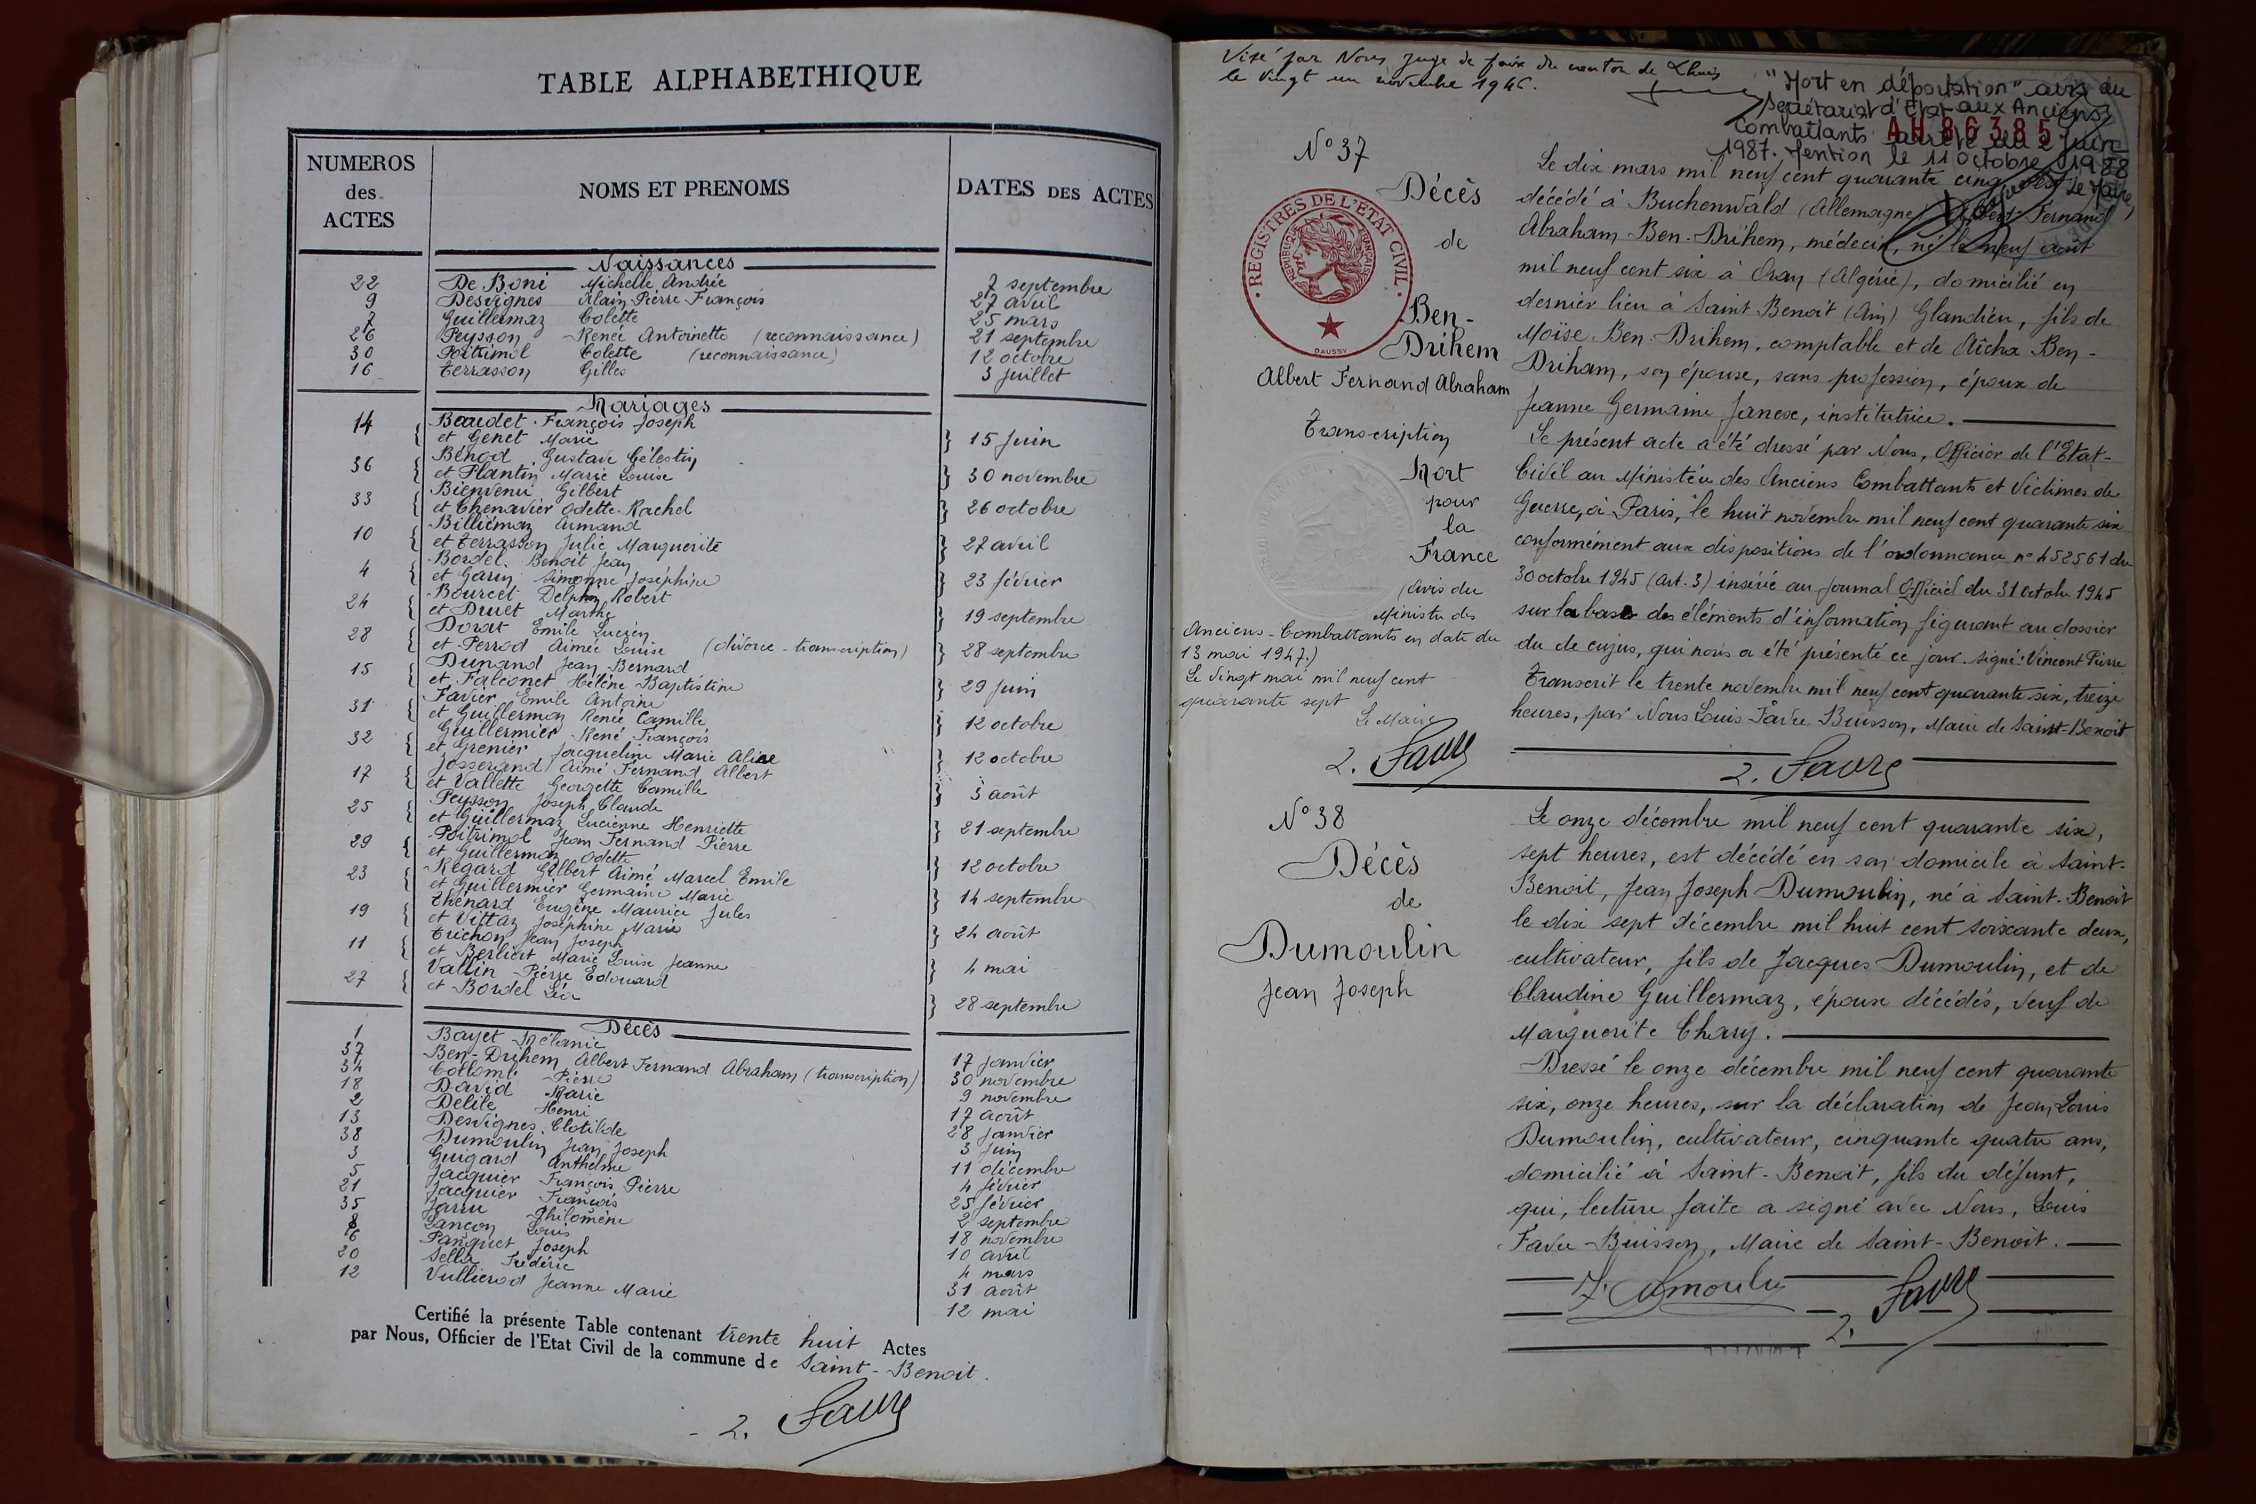 TABLE ALPHABETHIQUE
NUMEROS
des
ACTES
NOMS ET PRENOMS
DATES DES ACTES
Naissances
22 De Boni Michelle Andrée 7 septembre
9 Desvignes Alain Pierre François 27 avril
7 Guillermaz Colette 25 mars
26 Peysson Renée Antoinette (reconnaissance) 21 septembre
30 Poitrimol Colette (reconnaissance) 12 octobre
16 Terrasson Gilles 3 juillet
Mariages
14 Beaudet François Joseph
et Genet Marie 15 Juin
36 Béhod Gustave Célestin
et Plantin Marie Louise 30 novembre
33 Bienvenu Gilbert
et Chenavier Odette Rachel 26 octobre
10 Billiémaz Armand
et Terrasson Julie Marguerite 27 avril
4 Bordel Benoît Jean
et Garin Simonne Joséphine 23 février
24 Bourcet Delphin Robert
et Druet Marthe 19 septembre
28 Dorat Emile Lucien
et Perrod Aimée Louise (divorce - transcription) 28 septembre
15 Dunand Jean Bernard
et Falconet Hélène Baptistine 29 juin
31 Favier Emile Antoine
et Guillermoz Renée Camille 12 octobre
32 Guillermier René François
et Grenier Jacqueline Marie Aline 12 octobre
17 Josserand Aimé Fernand Albert
et Vallette Georgette Camille 3 août
25 Peysson Joseph Claude
et Guillermaz Lucienne Henriette 21 septembre
29 Poitrimol Jean Fernand Pierre
et Guillermaz Odette 12 octobre
23 Regard Gilbert Aimé Marcel Emile
et Guillermier Germaine Marie 14 septembre
19 Thénard Eugène Maurice Jules
et Vittaz Joséphine Marie 24 août
11 Trichon Jean Joseph
et Berliert Marie Louise Jeanne 4 mai
27 Vallin Pierre Edouard
et Bordel Léa 28 septembre
Décès
1 Bayet Mélanie 17 janvier
37 Ben-Drihem Albert Fernand Abraham (transcription) 30 novembre
34 Collomb Pierre 9 novembre
18 David Marie 17 août
2 Delile Henri 28 janvier
13 Desvignes Clotilde 3 juin
38 Dumoulin Jean Joseph 11 décembre
3 Guigard Anthelme 4 février
5 Jacquier François Pierre 25 février
21 Jacquier François 2 septembre
35 Jarru Philomène 18 novembre
8 Lançon Louis 10 avril
6 Panguet Joseph 4 mars
20 Sella Frédéric 31 août
12 Vullierod Jeanne Marie 12 mai
Certifié la présente Table contenant trente huit Actes
par Nous, Officier de l'Etat Civil de la commune de Saint-Benoit.
L. Favre
Visé par Nous Juge de paix du canton de Lhuis
le vingt un novembre 1946.
"Mort en déportation" avis du
Secrétariat d'Etat aux Anciens
Combattants arrêté du 2 Juin
AH86385
1987. Mention le 11 Octobre 1988
Le Maire,
N° 37
Décès
de
Ben-
Drihem
Albert Fernand Abraham
Transcription
REGISTRES DE L'ETAT CIVIL
REPUBLIQUE FRANÇAISE
DAUSSY
Mort
pour
la
France
(avis du
Ministre des
Anciens-Combattants en date du
13 mai 1947.)
Le vingt mai mil neuf cent
quarante sept
Le Maire
L. Favre
Le dix mars mil neuf cent quarante cinq est
décédé à Buchenwald (Allemagne) Albert Fernand
Abraham Ben-Drihem, médecin, né le neuf août
mil neuf cent six à Oran (Algérie), domicilié en
dernier lieu à Saint Benoit (Ain) Glandieu, fils de
Moïse Ben-Drihem, comptable et de Aïcha Ben-
Driham, son épouse, sans profession, époux de
Jeanne Germaine Janese, institutrice.
Le présent acte a été dressé par Nous, Officier de l'Etat-
Civil au Ministère des Anciens Combattants et Victimes de
Guerre, à Paris, le huit novembre mil neuf cent quarante six
conformément aux dispositions de l'ordonnance n° 452561 du
30 octobre 1945 (art. 3) inséré au Journal Officiel du 31 octobre 1945
sur la base des éléments d'information figurant au dossier
du de cujus, qui nous a été présenté ce jour. signé: Vincent Pierre
Transcrit le trente novembre mil neuf cent quarante six, treize
heures, par Nous Louis Favre Buisson, Maire de Saint-Benoit
L. Favre
N° 38
Décès
de
Dumoulin
Jean Joseph
Le onze décembre mil neuf cent quarante six,
sept heures, est décédé en son domicile à Saint-
Benoit, Jean Joseph Dumoulin, né à Saint-Benoit
le dix sept décembre mil huit cent soixante deux,
cultivateur, fils de Jacques Dumoulin, et de
Claudine Guillermaz, époux décédés, veuf de
Marguerite Chary.
Dressé le onze décembre mil neuf cent quarante
six, onze heures, sur la déclaration de Jean Louis
Dumoulin, cultivateur, cinquante quatre ans,
domicilié à Saint-Benoit, fils du défunt,
qui, lecture faite a signé avec Nous, Louis
Favre-Buisson, Maire de Saint-Benoit.
J. Dumoulin
L. Favre